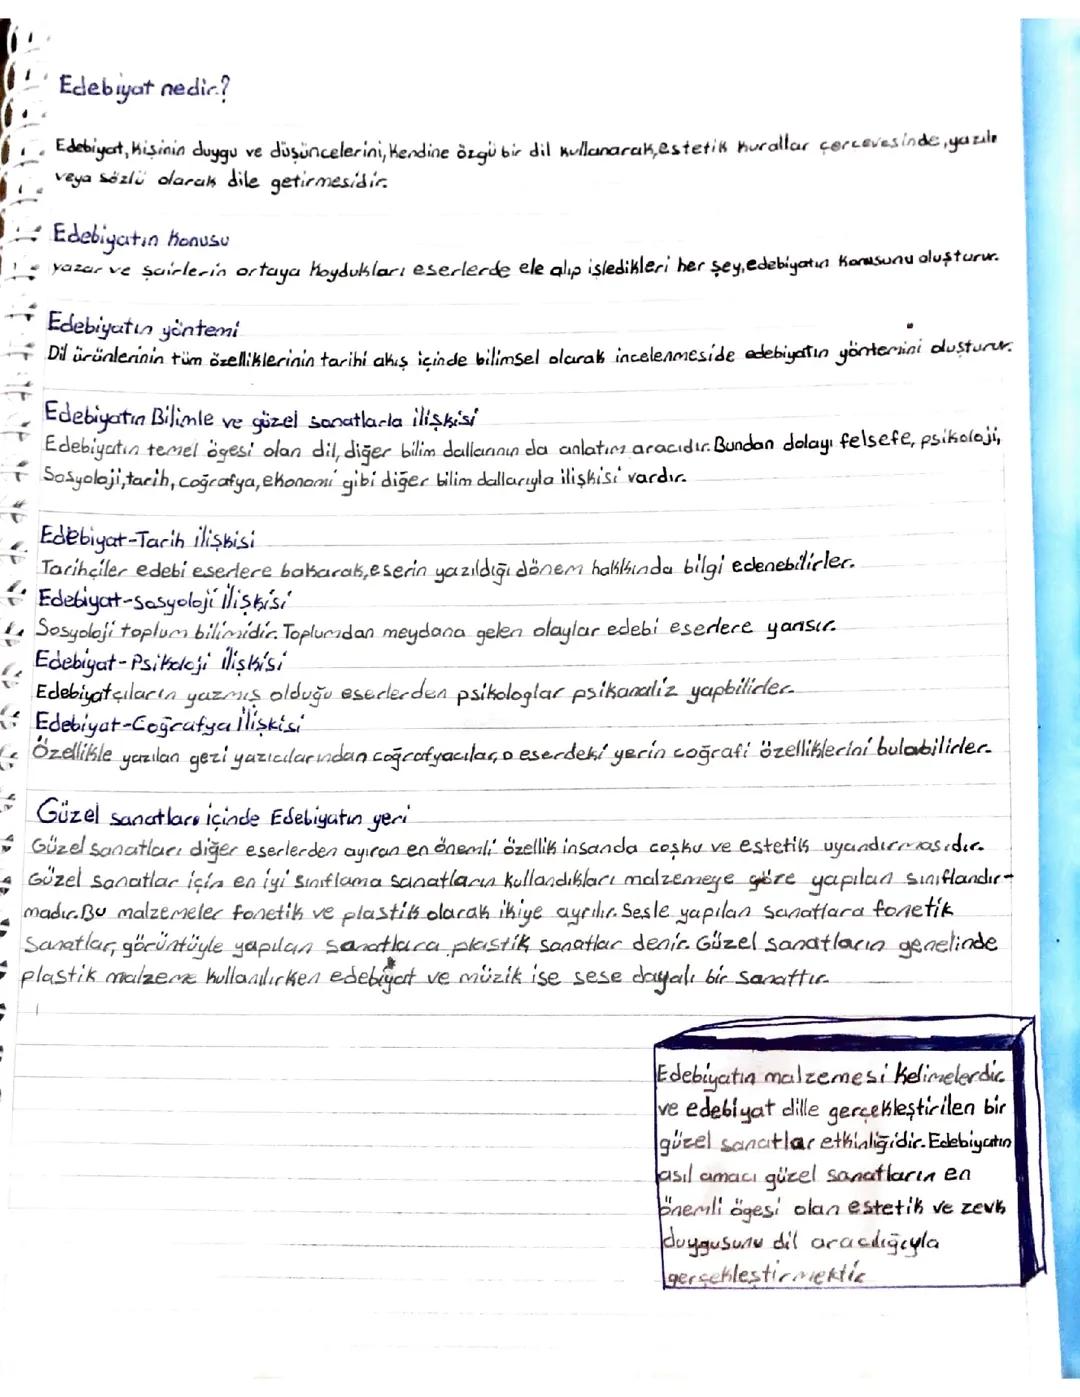 Edebiyat nedir?
Edebiyat, kişinin duygu ve düşüncelerini, kendine özgü bir dil kullanarak, estetik kurallar çerçevesinde, yazılı
veya sözlü olarak dile getirmesidir.
Edebiyatın konusu
yazar ve şairlerin ortaya koydukları eserlerde ele alıp işledikleri her şey, edebiyatın konusunu oluşturur.
Edebiyatın yöntemi
Dil ürünlerinin tüm özelliklerinin tarihi akış içinde bilimsel olarak incelenmeside edebiyatın yöntemini oluşturur.
Edebiyatın Bilimle ve güzel sanatlarla ilişkisi
Edebiyatın temel ögesi olan dil, diğer bilim dallarının da anlatım aracıdır. Bundan dolayı felsefe, psikoloji,
Sosyoloji, tarih, coğrafya, ekonomi gibi diğer bilim dallarıyla ilişkisi vardır.
Edebiyat-Tarih ilişkisi
Tarihçiler edebi eserlere bakarak, eserin yazıldığı dönem hakkında bilgi edenebilirler.
Edebiyat-sosyoloji ilişkisi
Sosyoloji toplum bilimidir. Toplumdan meydana gelen olaylar edebi eserlere yansır.
Edebiyat-Psikoloji ilişkisi
Edebiyatçıların yazmış olduğu eserlerden psikologlar psikanaliz yapbilirler.
Edebiyat-Coğrafya İlişkisi
Özellikle yazılan gezi yazıcılarından coğrafyacılar, o eserdeki yerin coğrafi özelliklerini bulabilirler.
Güzel sanatlar içinde Edebiyatın yeri
Güzel sanatları diğer eserlerden ayıran en önemli özellik insanda coşku ve estetik uyandırmasıdır.
Güzel sanatlar için en iyi sınıflama sanatların kullandıkları malzemeye göre yapılan sınıflandır-
madır. Bu malzemeler fonetik ve plastik olarak ikiye ayrılır. Sesle yapılan sanatlara fonetik
Sanatlar, görüntüyle yapılan sanatlara plastik sanatlar denir. Güzel sanatların genelinde
plastik malzeme kullanılırken edebiyat ve müzik ise sese dayalı bir sanattır.
Edebiyatın malzemesi kelimelerdir
ve edebiyat dille gerçekleştirilen bir
güzel sanatlar etkinliğidir. Edebiyatın
asıl amacı güzel sanatların en
önemli ögesi olan estetik ve zevk
duygusunu dil aracılığıyla
gerçekleştirmektir